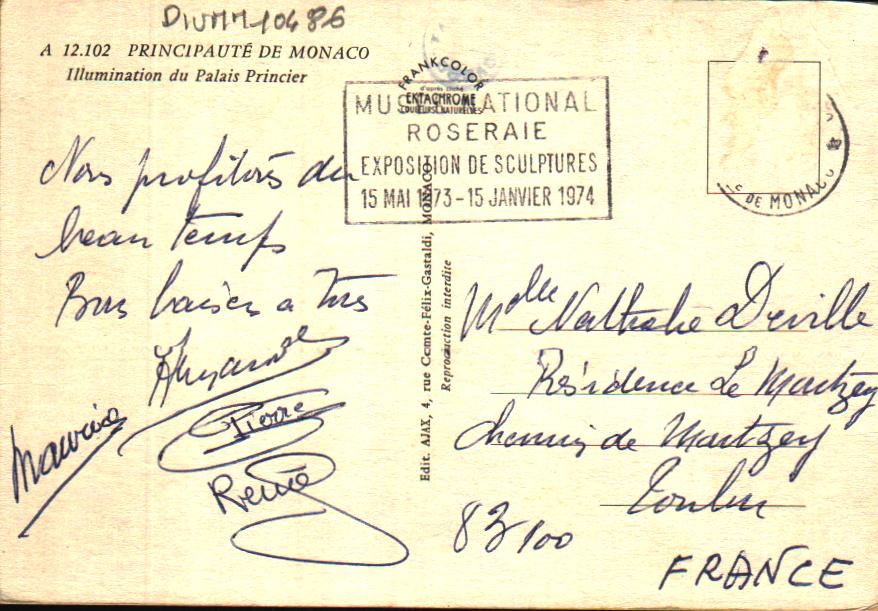 DIVMM10486
A 12.102 PRINCIPAUTÉ DE MONACO
Illumination du Palais Princier
FRANKCOLOR
d'après cliché
EKTACHROME
COULEURS NATURELLES
MUSÉE NATIONAL
ROSERAIE
EXPOSITION DE SCULPTURES
15 MAI 1973-15 JANVIER 1974
DE MONACO
Nous profitons du
beau temps
Bons baisers a tous
Pierre
Maurice
René
Edit. AJAX, 4, rue Comte-Félix-Gastaldi, MONACO
Reproduction interdite
Melle Nathalie Deville
Résidence Le Martzey
Chemin de Martzey
Toulon
83100
FRANCE